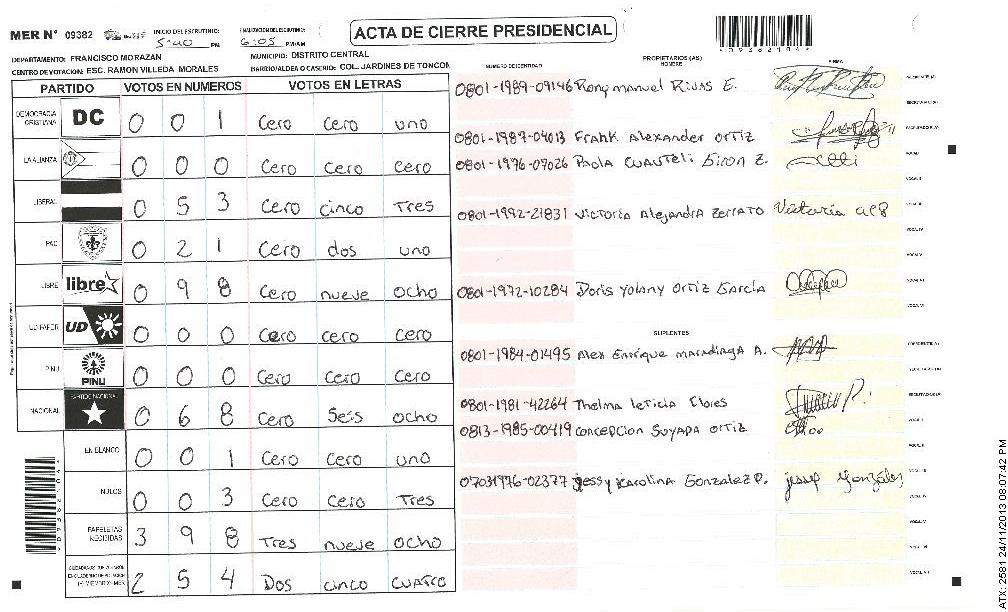 MER N° 09382
INICIO DEL ESCRUTINIO:
5:40 PM
FINALIZACION DEL ESCRUTINIO:
6:05 PM/AM
ACTA DE CIERRE PRESIDENCIAL
DEPARTAMENTO: FRANCISCO MORAZAN
MUNICIPIO: DISTRITO CENTRAL
CENTRO DE VOTACION: ESC. RAMON VILLEDA MORALES
BARRIO/ALDEA O CASERIO: COL. JARDINES DE TONCON
PARTIDO VOTOS EN NUMEROS VOTOS EN LETRAS
DEMOCRACIA CRISTIANA DC 0 0 1 Cero Cero uno
LA ALIANZA 0 0 0 Cero Cero Cero
LIBERAL 0 5 3 Cero cinco Tres
PAC 0 2 1 Cero dos uno
LIBRE libre 0 9 8 Cero nueve ocho
UD FAPER UD 0 0 0 Cero cero cero
PINU PINU 0 0 0 Cero Cero Cero
NACIONAL PARTIDO NACIONAL 0 6 8 Cero Seis ocho
EN BLANCO 0 0 1 Cero Cero uno
NULOS 0 0 3 Cero Cero Tres
PAPELETAS RECIBIDAS 3 9 8 Tres nueve ocho
2 5 4 Dos cinco cuatro
NUMERO DE IDENTIDAD
PROPIETARIOS (AS)
NOMBRE
FIRMA
0801-1989-09146 Rony manuel Rivas E.
0801-1987-04013 Frank Alexander Ortiz
0801-1976-07026 Paola Cuauteli Giron Z.
0801-1992-21831 Victoria Alejandra Zerrato Victoria
0801-1972-10284 Doris Yolany Ortiz García
SUPLENTES
0801-1984-01495 Alex Enrique maradiaga A.
0801-1981-42264 Thelma leticia Flores
0813-1985-00419 Concepcion Suyapa Ortiz
07031976-02377 jessy Karolina Gonzalez P.
ATX: 2581 24/11/2013 08:07:42 PM